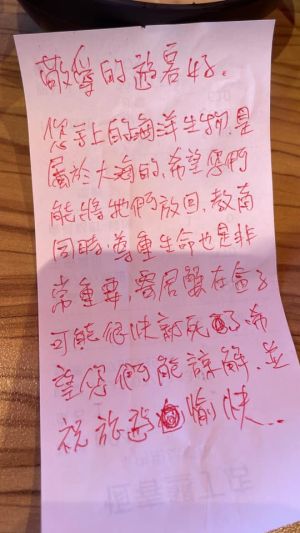 敬學的遊客好.
您手上的海洋生物,是
屬於大海的,希望你們
能將牠們放回,教育
同時,尊重生命也是非
常重要,寄居蟹在盒子
可能很快就死了,希
望你們能諒解,並
祝旅遊愉快...